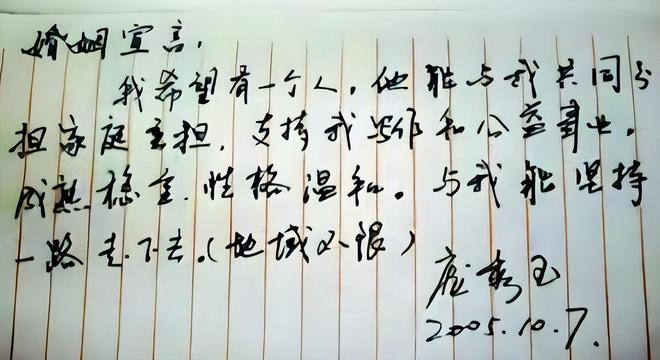 婚姻宣言,
我希望有一个人,他能与我共同分
担家庭重担,支持我写作和公益事业,
成熟稳重,性格温和。与我能坚持
一路走下去。(地域不限)
庞秀玉
2005.10.7.